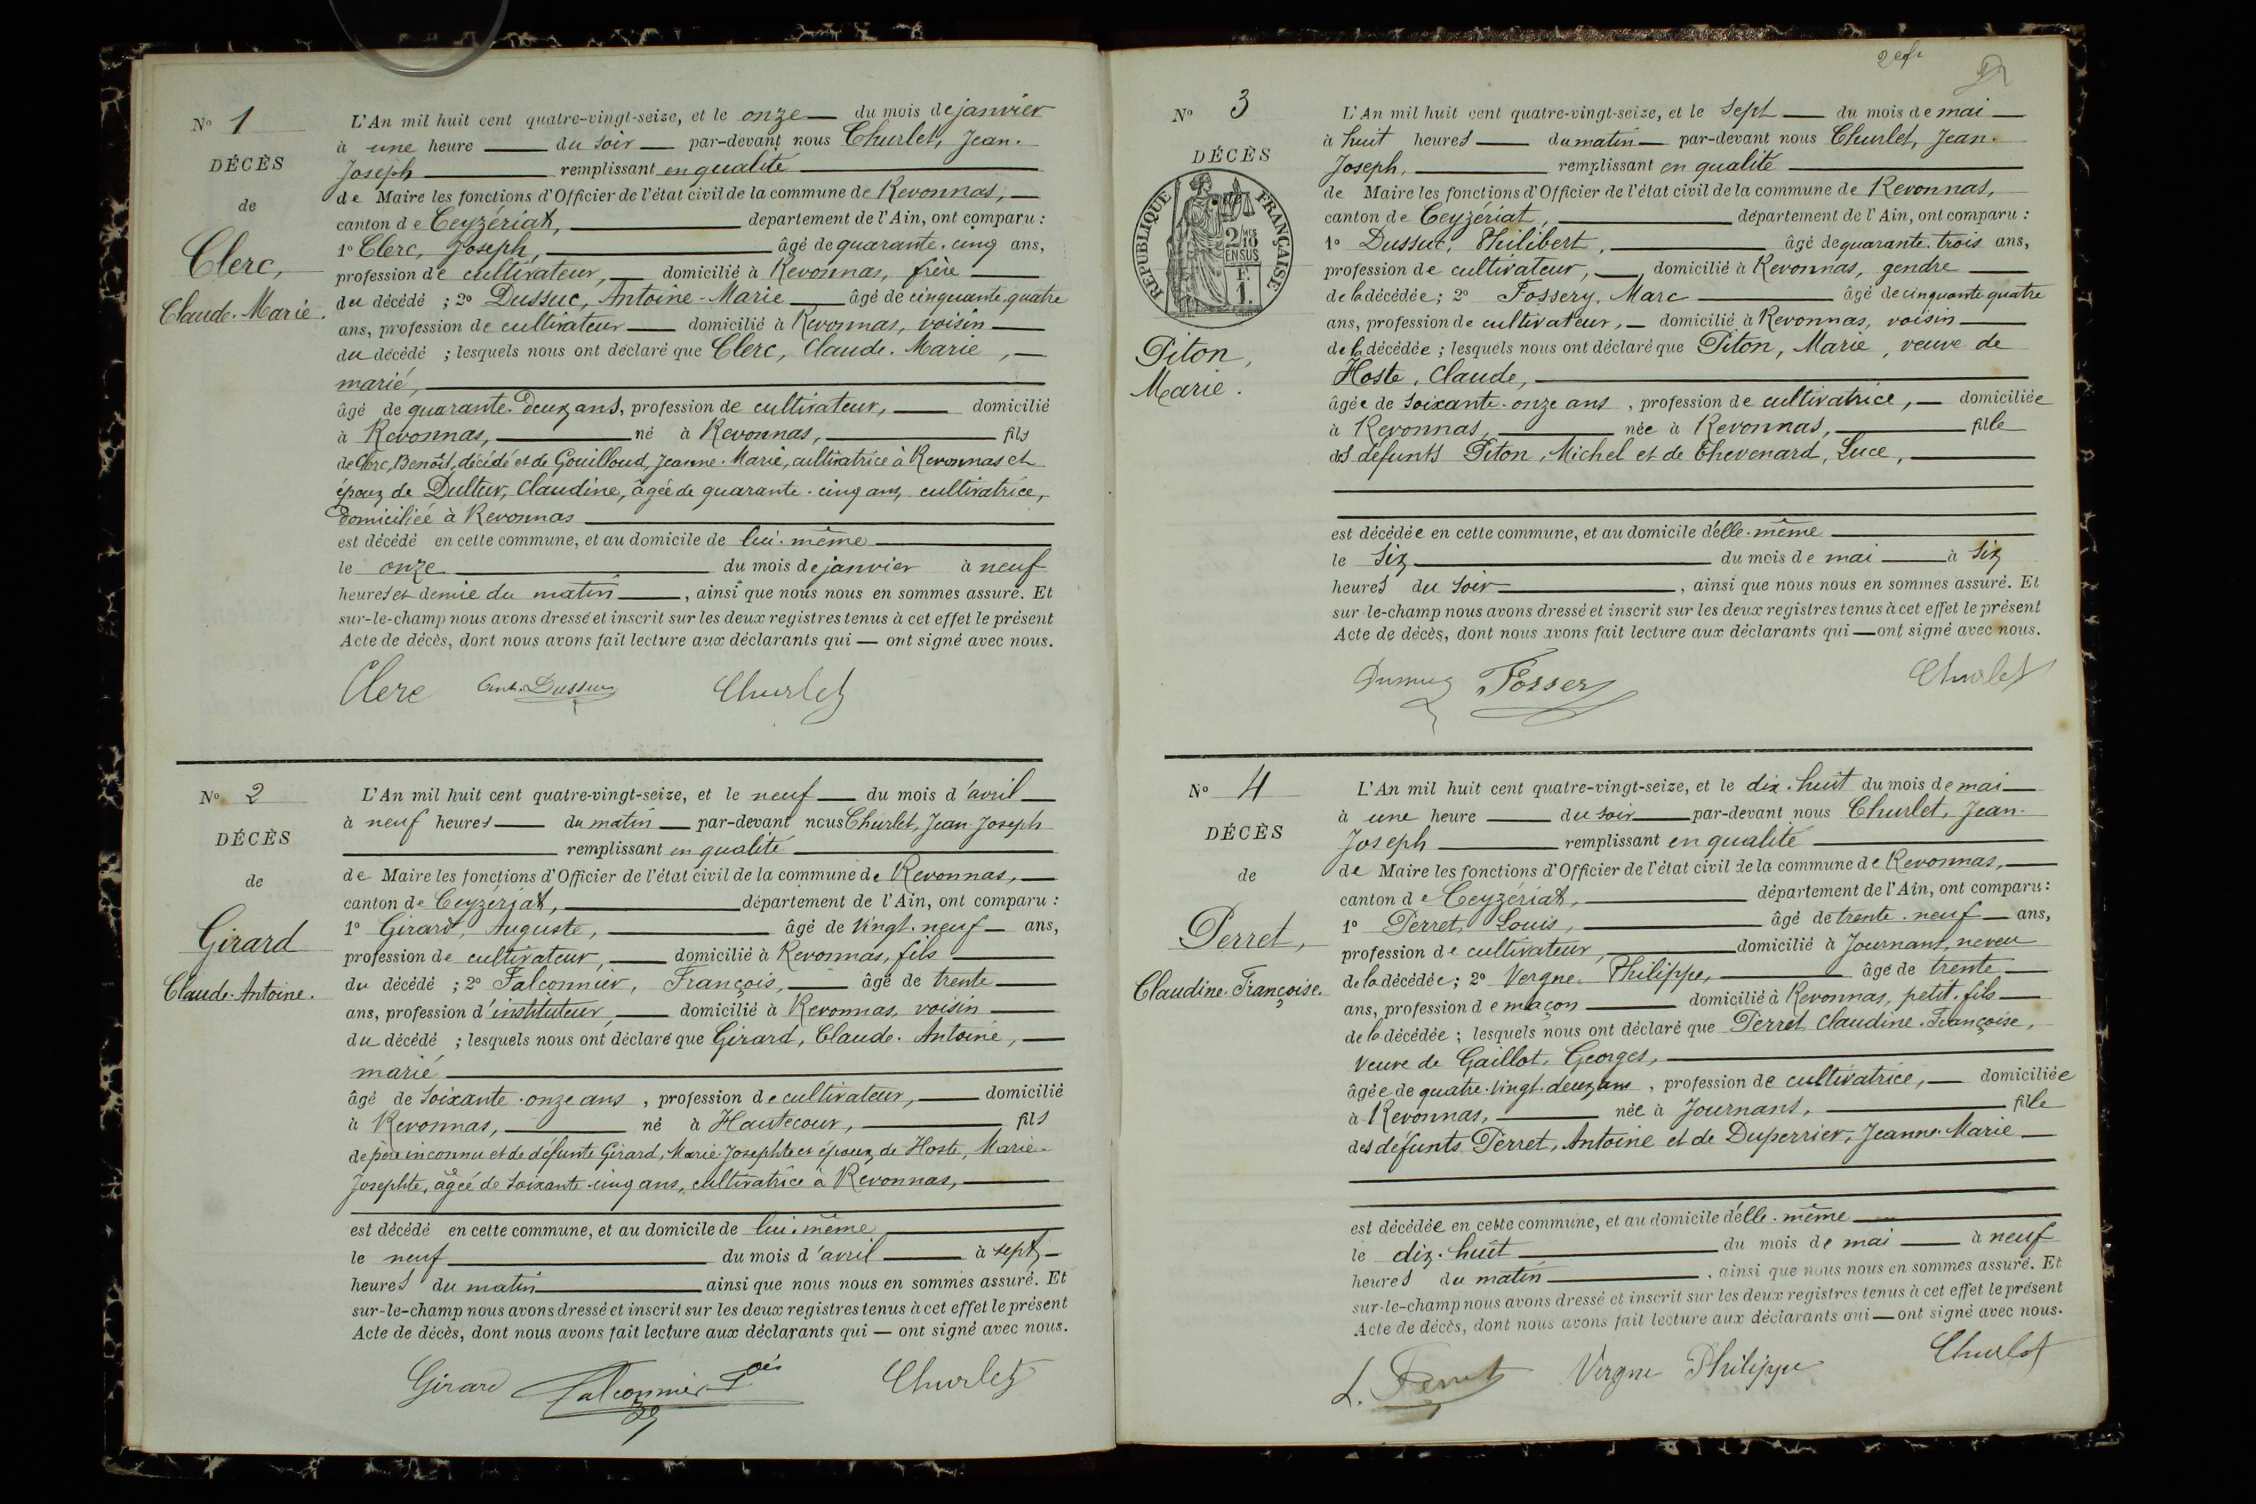 N° 1
DÉCÈS
de
Clerc,
Claude-Marie.
L'An mil huit cent quatre-vingt-seize, et le onze du mois de janvier
à une heure du soir par-devant nous Churlet, Jean-
Joseph remplissant en qualité
de Maire les fonctions d'Officier de l'état civil de la commune de Revonnas,
canton de Ceyzériat, département de l'Ain, ont comparu :
1° Clerc, Joseph, âgé de quarante-cinq ans,
profession de cultivateur, domicilié à Revonnas, frère
du décédé ; 2° Dussuc, Antoine-Marie âgé de cinquante-quatre
ans, profession de cultivateur domicilié à Revonnas, voisin
du décédé ; lesquels nous ont déclaré que Clerc, Claude-Marie,
marié,
âgé de quarante-deux ans, profession de cultivateur, domicilié
à Revonnas, né à Revonnas, fils
de Clerc, Benoît, décédé et de Gouilloud, Jeanne-Marie, cultivatrice à Revonnas et
époux de Dultur, Claudine, âgée de quarante-cinq ans, cultivatrice,
domiciliée à Revonnas
est décédé en cette commune, et au domicile de lui-même
le onze du mois de janvier à neuf
heures et demie du matin, ainsi que nous nous en sommes assuré. Et
sur-le-champ nous avons dressé et inscrit sur les deux registres tenus à cet effet le présent
Acte de décès, dont nous avons fait lecture aux déclarants qui — ont signé avec nous.
Clerc Ant. Dussuc Churlet
N° 2
DÉCÈS
de
Girard
Claude-Antoine.
L'An mil huit cent quatre-vingt-seize, et le neuf du mois d'avril
à neuf heures du matin par-devant nous Churlet, Jean-Joseph
remplissant en qualité
de Maire les fonctions d'Officier de l'état civil de la commune de Revonnas,
canton de Ceyzériat, département de l'Ain, ont comparu :
1° Girard, Auguste, âgé de vingt-neuf ans,
profession de cultivateur, domicilié à Revonnas, fils
du décédé ; 2° Falconnier, François, âgé de trente
ans, profession d'instituteur, domicilié à Revonnas, voisin
du décédé ; lesquels nous ont déclaré que Girard, Claude-Antoine,
marié
âgé de soixante-onze ans, profession de cultivateur, domicilié
à Revonnas, né à Hautecour, fils
de père inconnu et de défunte Girard, Marie-Josephte et époux de Hoste, Marie-
Josephte, âgée de soixante-cinq ans, cultivatrice à Revonnas,
est décédé en cette commune, et au domicile de lui-même
le neuf du mois d'avril à sept
heures du matin ainsi que nous nous en sommes assuré. Et
sur-le-champ nous avons dressé et inscrit sur les deux registres tenus à cet effet le présent
Acte de décès, dont nous avons fait lecture aux déclarants qui — ont signé avec nous.
Girard Falconnier Fçois Churlet
N° 3
DÉCÈS
RÉPUBLIQUE FRANÇAISE
2/10 EN SUS
F. 1.
Piton,
Marie.
L'An mil huit cent quatre-vingt-seize, et le sept du mois de mai
à huit heures du matin par-devant nous Churlet, Jean-
Joseph, remplissant en qualité
de Maire les fonctions d'Officier de l'état civil de la commune de Revonnas,
canton de Ceyzériat, département de l'Ain, ont comparu :
1° Dussuc, Philibert, âgé de quarante-trois ans,
profession de cultivateur, domicilié à Revonnas, gendre
de la décédée ; 2° Fossery, Marc âgé de cinquante-quatre
ans, profession de cultivateur, domicilié à Revonnas, voisin
de la décédée ; lesquels nous ont déclaré que Piton, Marie, veuve de
Hoste, Claude,
âgée de soixante-onze ans, profession de cultivatrice, domiciliée
à Revonnas, née à Revonnas, fille
des défunts Piton, Michel et de Thevenard, Luce,
est décédée en cette commune, et au domicile d'elle-même
le six du mois de mai à six
heures du soir, ainsi que nous nous en sommes assuré. Et
sur-le-champ nous avons dressé et inscrit sur les deux registres tenus à cet effet le présent
Acte de décès, dont nous avons fait lecture aux déclarants qui — ont signé avec nous.
Churlet
N° 4
DÉCÈS
de
Perret,
Claudine-Françoise.
L'An mil huit cent quatre-vingt-seize, et le dix-huit du mois de mai
à une heure du soir par-devant nous Churlet, Jean-
Joseph remplissant en qualité
de Maire les fonctions d'Officier de l'état civil de la commune de Revonnas,
canton de Ceyzériat, département de l'Ain, ont comparu :
1° Perret, Louis, âgé de trente-neuf ans,
profession de cultivateur, domicilié à Journans, neveu
de la décédée ; 2° Vergne, Philippe, âgé de trente
ans, profession de maçon domicilié à Revonnas, petit-fils
de la décédée ; lesquels nous ont déclaré que Perret, Claudine-Françoise,
veuve de Gaillot, Georges,
âgée de quatre-vingt-deux ans, profession de cultivatrice, domiciliée
à Revonnas, née à Journans, fille
des défunts Perret, Antoine et de Duperrier, Jeanne-Marie
est décédée en cette commune, et au domicile d'elle-même
le dix-huit du mois de mai à neuf
heures du matin, ainsi que nous nous en sommes assuré. Et
sur-le-champ nous avons dressé et inscrit sur les deux registres tenus à cet effet le présent
Acte de décès, dont nous avons fait lecture aux déclarants qui — ont signé avec nous.
L. Perret Vergne Philippe Churlet